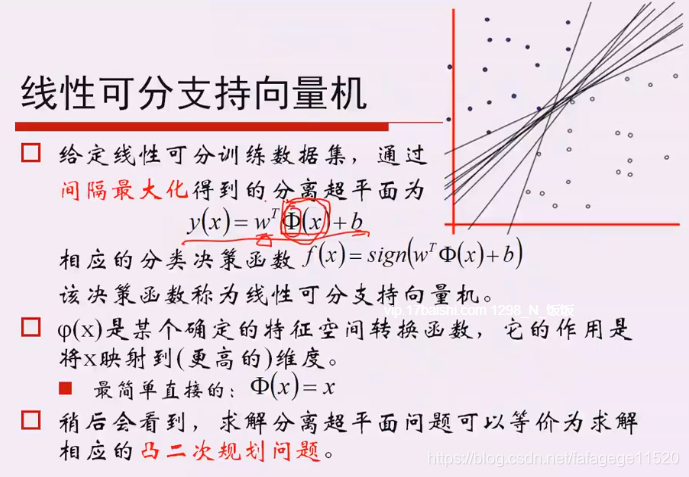 线性可分支持向量机
给定线性可分训练数据集，通过
间隔最大化得到的分离超平面为
y(x) = wᵀΦ(x) + b
相应的分类决策函数 f(x) = sign(wᵀΦ(x) + b)
该决策函数称为线性可分支持向量机。
vip.17baishi.com 1298_N_饭饭
φ(x)是某个确定的特征空间转换函数，它的作用是
将x映射到(更高的)维度。
最简单直接的：Φ(x) = x
稍后会看到，求解分离超平面问题可以等价为求解
相应的凸二次规划问题。
https://blog.csdn.net/fafagage11520